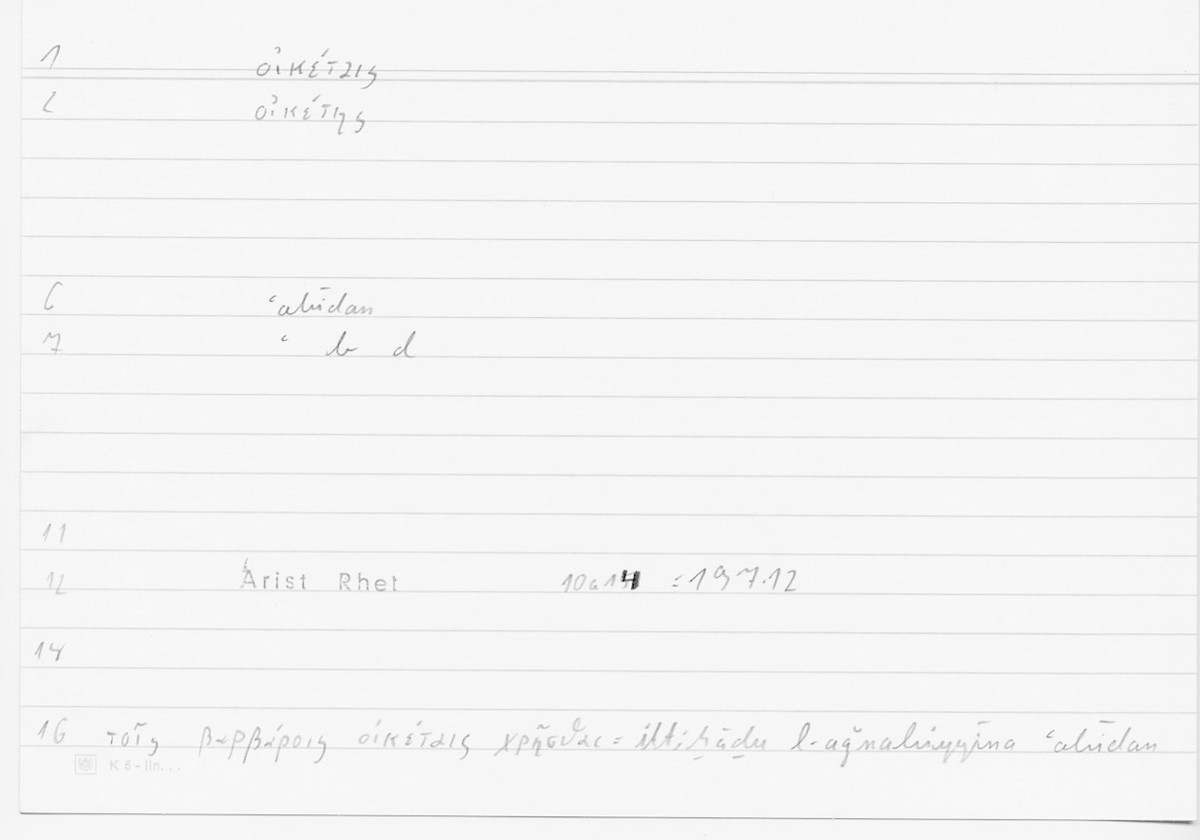 1 οἰκέταις
2 οἰκέτης
6 ʿabīdan
7 ʿ b d
11
12 Arist Rhet 10a14 = 197.12
14
16 τοῖς βαρβάροις οἰκέταις χρῆσθαι = ittiḫāḏu l-aǧnabīyīna ʿabīdan
K 5 - lin...